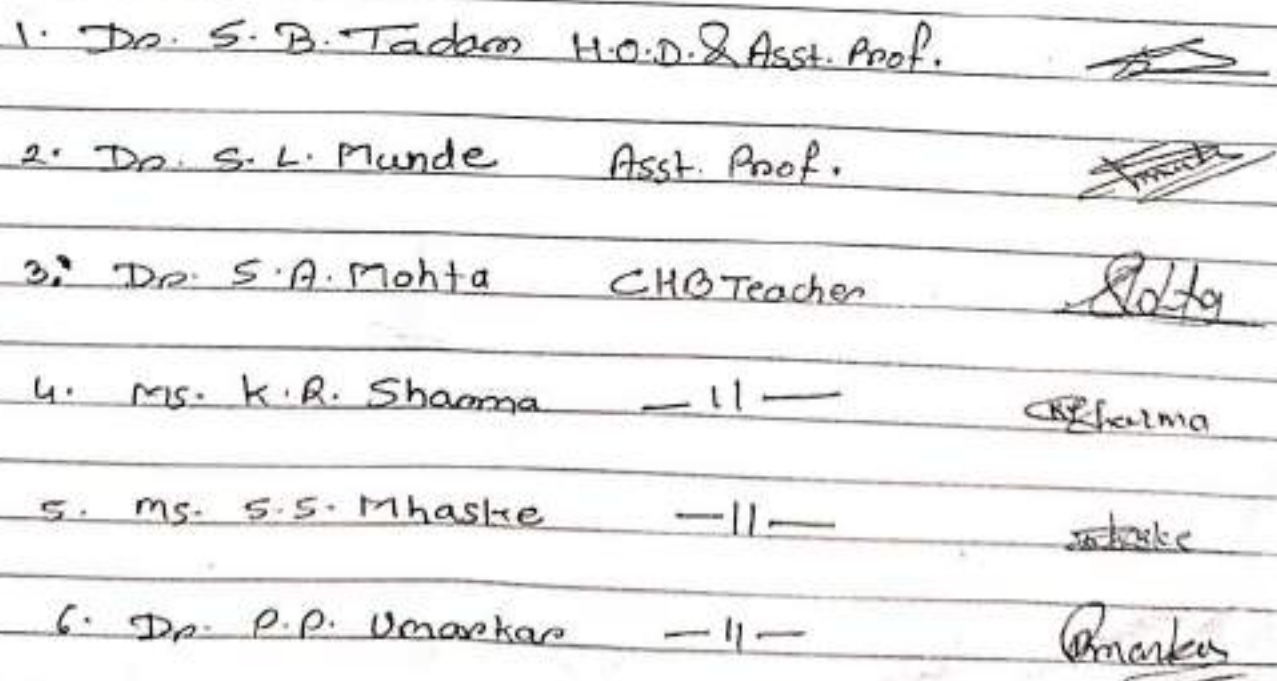 1. Dr. S. B. Tadam H.O.D. & Asst. Prof.
2. Dr. S. L. Munde Asst. Prof.
3. Dr. S. A. Mohta CHB Teacher
4. Ms. K. R. Sharma —11— Sharma
5. Ms. S. S. Mhaske —11—
6. Dr. P. P. Umarkar —11— Umarkar